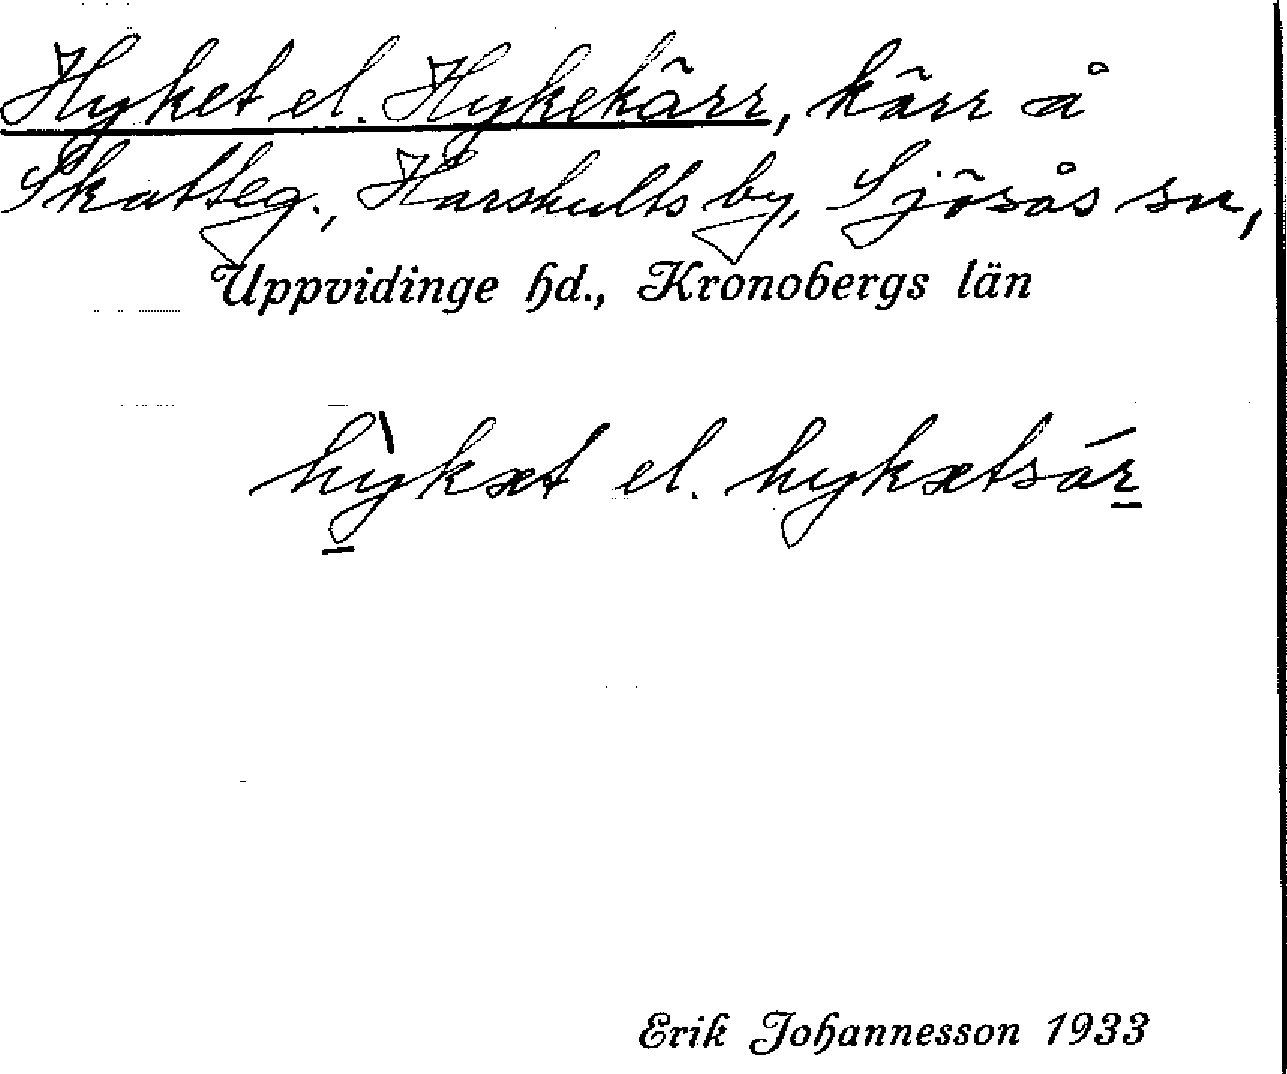 Hyket el. Hykekärr, kärr å
Skatteg., Harshults by, Sjösås sn,
Uppvidinge hd., Kronobergs län
hỳ̠kxt el. hykxtsár̠
Erik Johannesson 1933